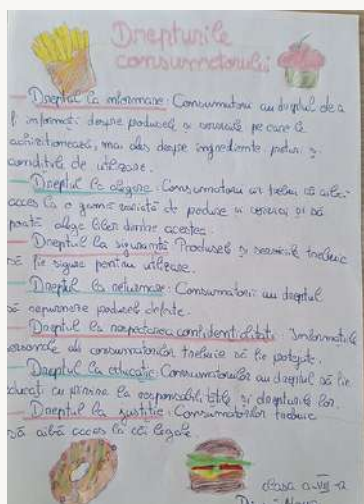 Drepturile
consumatorului
Dreptul la informare: Consumatorii au dreptul de a
fi informați despre produsele și serviciile pe care le
achiziționează, mai ales despre ingrediente, prețuri și
condițiile de utilizare.
Dreptul la alegere: Consumatorii ar trebui să aibă
acces la o gamă variată de produse și servicii și să
poată alege liber dintre acestea.
Dreptul la siguranță: Produsele și serviciile trebuie
să fie sigure pentru utilizare.
Dreptul la returnare: Consumatorii au dreptul
să returneze produsele defecte.
Dreptul la respectarea confidențialității: Informațiile
personale ale consumatorilor trebuie să fie protejate.
Dreptul la educație: Consumatorilor au dreptul să fie
educați cu privire la responsabilitățile și drepturile lor.
Dreptul la justiție: Consumatorilor trebuie
să aibă acces la căi legale.
clasa a-VII-a